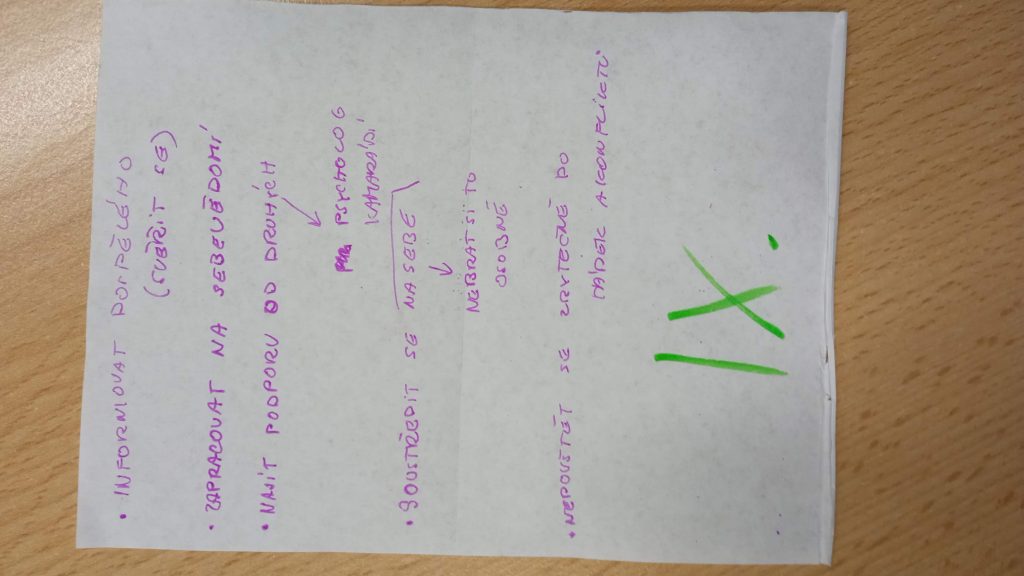 • INFORMOVAT DOSPĚLÉHO
(SVĚŘIT SE)
• ZAPRACOVAT NA SEBEVĚDOMÍ
• NAJÍT PODPORU OD DRUHÝCH
PSYCHOLOG
KAMARÁDI
• SOUSTŘEDIT SE NA SEBE
NEBRAT SI TO
OSOBNĚ
• NEPOUŠTĚT SE ZBYTEČNĚ DO
HÁDEK A KONFLIKTŮ
IX.